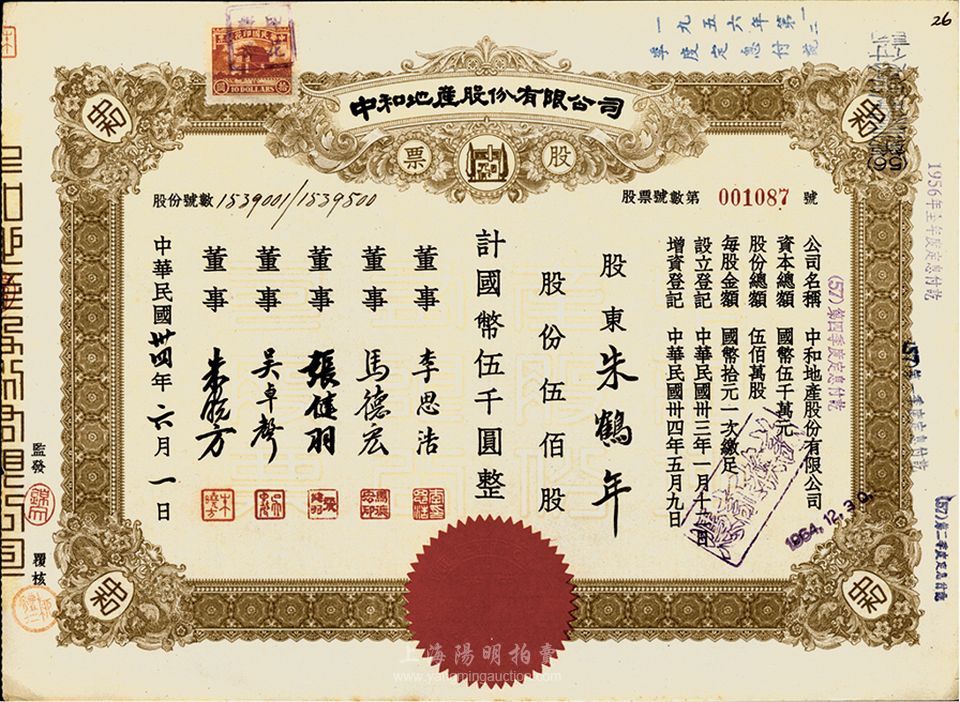 26
一九五六年第一二
季度定息付訖
10 DOLLARS
中和地產股份有限公司
股票
股票號數第 001087 號
股份號數 1539001/1539500
公司名稱 中和地產股份有限公司
資本總額 國幣伍千萬元
股份總額 伍佰萬股
每股金額 國幣拾元一次繳足
設立登記 中華民國卅三年一月十日
增資登記 中華民國卅四年五月九日
股東 朱鶴年
股份伍佰股
計國幣伍千圓整
董事 李思浩
董事 馬德宏
董事 張健羽
董事 吳卓聲
董事 朱曉方
中華民國卅四年六月一日
監發
覆核
1956年全年度定息付訖
(57)第四季度定息付訖
(57)第二季度定息付訖
1964.12.30.
上海陽明拍賣
www.yangmingauction.com